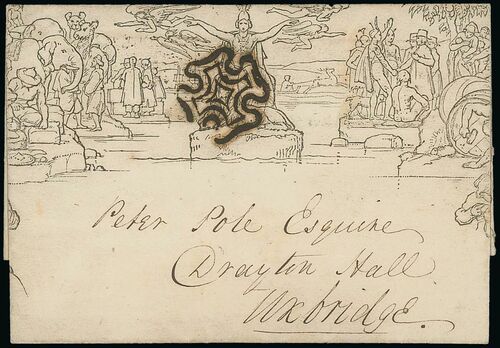 Peter Pole Esquire
Drayton Hall
Uxbridge.